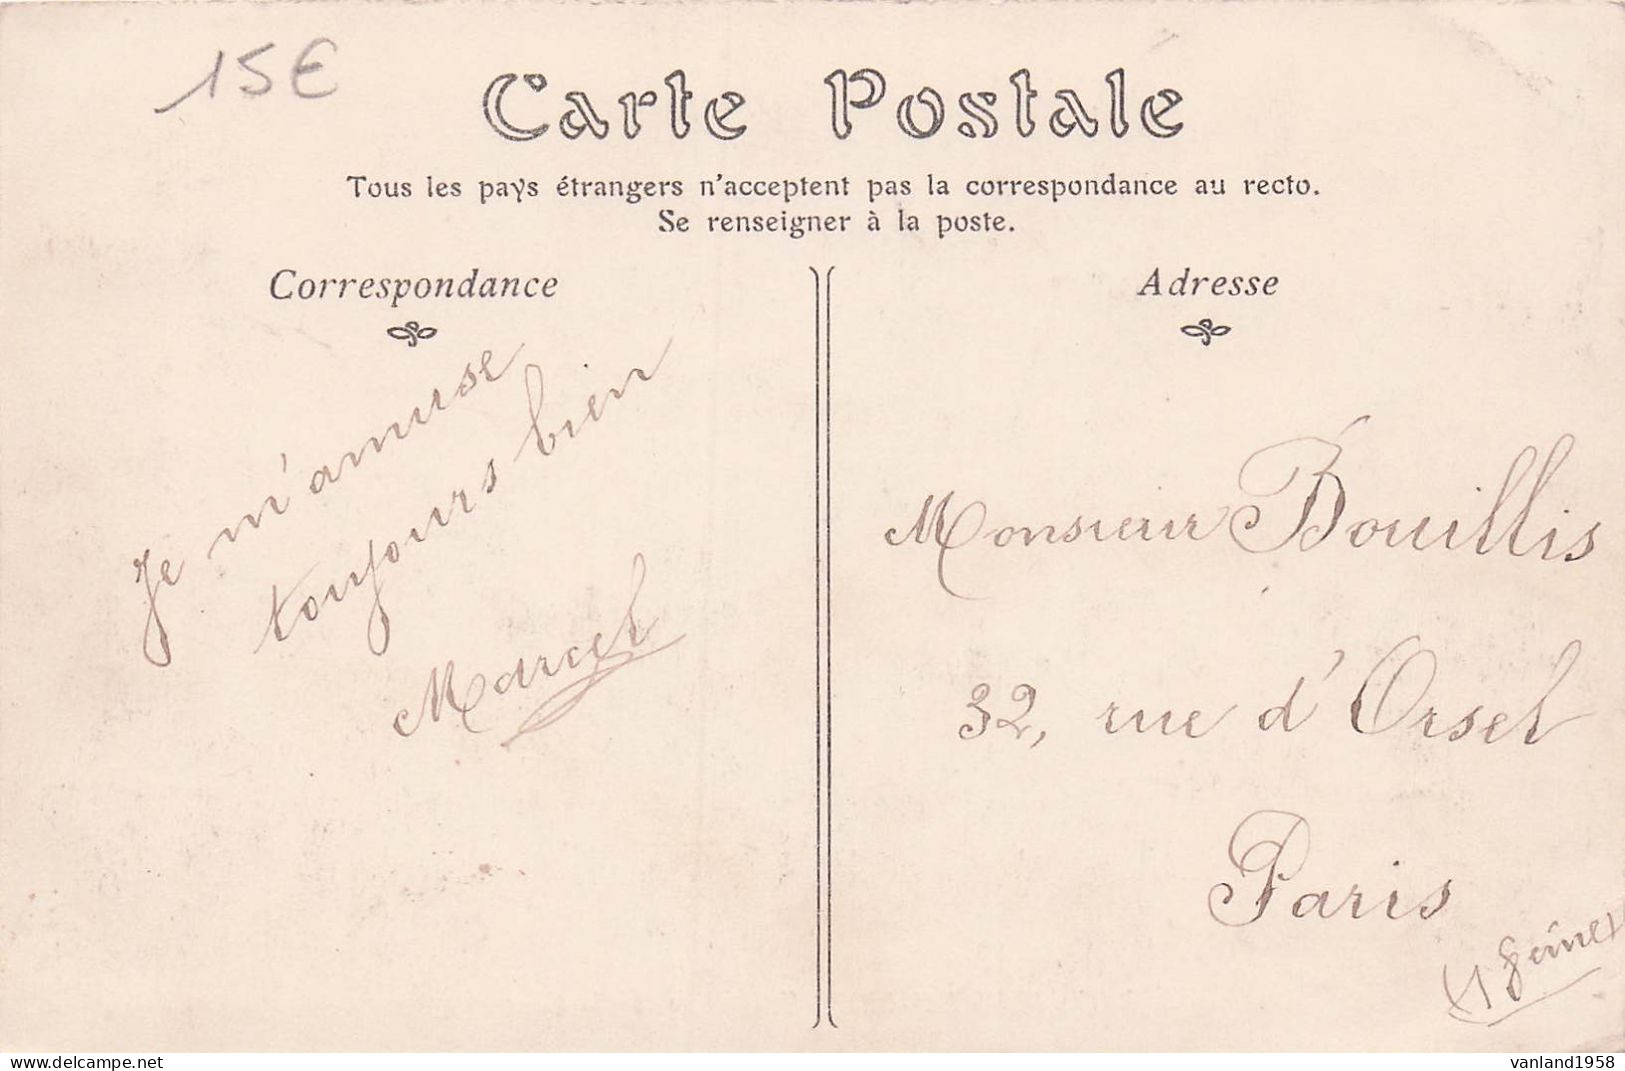 15€
Carte Postale
Tous les pays étrangers n'acceptent pas la correspondance au recto.
Se renseigner à la poste.
Correspondance
Je m'amuse
toujours bien
Marcel
Adresse
Monsieur Bouillis
32, rue d'Orsel
Paris
Seine
www.delcampe.net
vanland1958